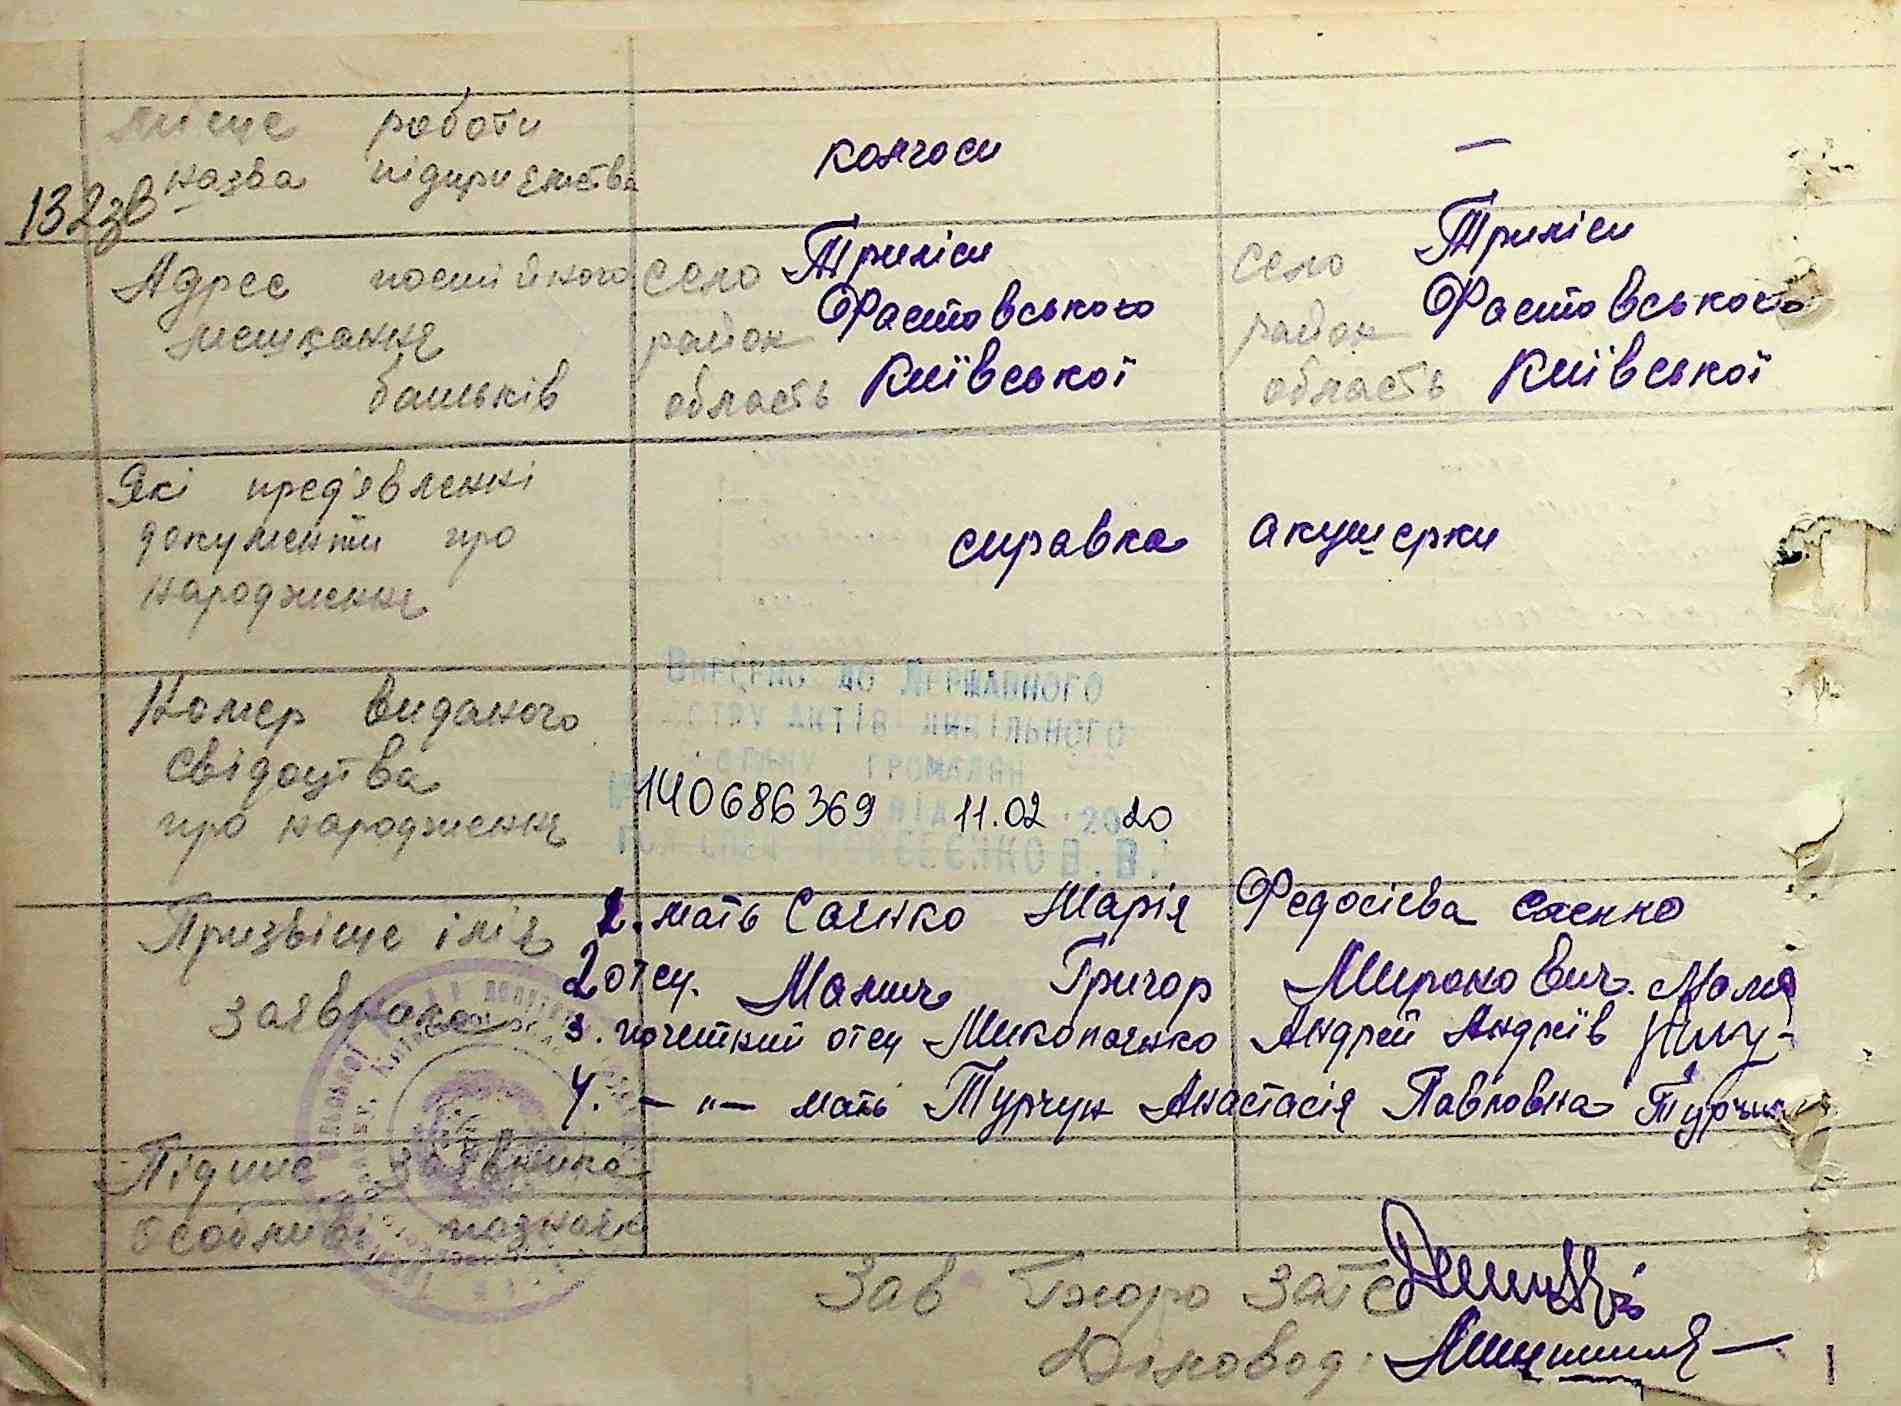 Місце роботи
назва підприємства
колгосп
—
132зв
Адрес постійного
мешкання
батьків
село Триліси
район Фастовського
область Київської
село Триліси
район Фастовського
область Київської
Які пред'явленні
документи про
народження
справка акушерки
Номер виданого
свідоцтва
про народження
Внесено до Державного
АКТІВ ЦИВІЛЬНОГО
ГРОМАДЯН
140686369 11.02 2020
В.В.
Призвіще імія
заявника
1. мать Саєнко Марія Федосієва Саєнко
2 отец. Малиш Григор Миронович.
3. почетний отец Миколаєнко Андрей Андріїв
4. — "— мать Турчун Анастасія Павловна Турчин
Підпис заявника
Особливі
Зав Бюро ЗАГС
Діловод.